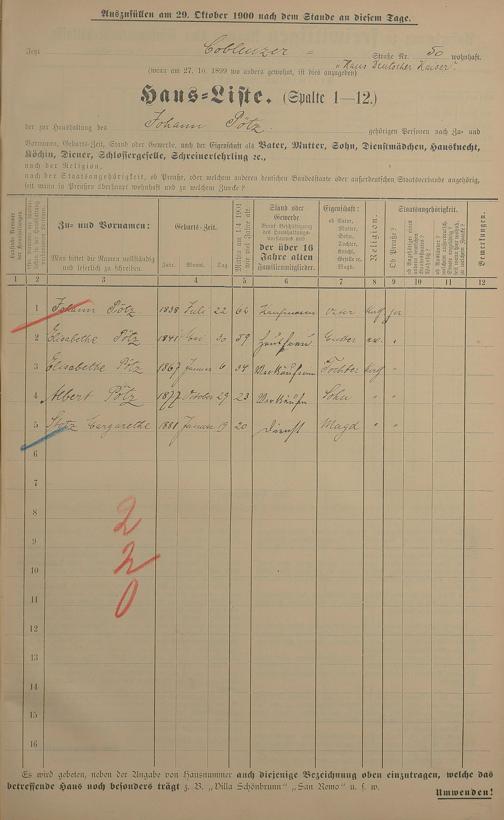 Auszufüllen am 29. Oktober 1900 nach dem Stande an diesem Tage.
Jetzt Coblenzer = Straße Nr. 50 wohnhaft.
(wenn am 27. 10. 1899 wo anders gewohnt, ist dies anzugeben) "Haus Deutscher Kaiser".
Haus=Liste. (Spalte 1—12.)
der zur Haushaltung des Johann Pötz gehörigen Personen nach Zu= und
Vornamen, Geburts=Zeit, Stand oder Gewerbe, nach der Eigenschaft als Vater, Mutter, Sohn, Dienstmädchen, Hausknecht,
Köchin, Diener, Schlossergeselle, Schreinerlehrling ꝛc.,
nach der Religion,
nach der Staatsangehörigkeit, ob Preuße, oder welchem anderen deutschen Bundesstaate oder außerdeutschen Staatsverbande angehörig,
seit wann in Preußen überhaupt wohnhaft und zu welchem Zwecke?
Zu= und Vornamen:
Man bittet die Namen vollständig und leserlich zu schreiben.
Geburts=Zeit.
Jahr. Monat. Tag.
Stand oder Gewerbe
der über 16 Jahre alten Familienmitglieder.
Eigenschaft:
ob Vater, Mutter, Sohn, Tochter,
Magd ꝛc.
Religion.
Staatsangehörigkeit.
Ob Preuße?
Bemerkungen.
1 2 3 4 5 6 7 8 9 10 11 12
1 Johann Pötz 1838 Juli 22 62 Kaufmann Vater kath ja
2 Elisabethe Pötz 1841 30 59 Hausfrau Mutter ev. "
3 Elisabethe Pötz 1867 Januar 6 34 Verkäuferin Tochter kath "
4 Albert Pötz 1877 October 29 23 Verkäufer Sohn " "
5 Margarethe 1881 Januar 19 20 Dienst Magd " "
6
7
8
9
10
11
12
13
14
15
16
2
2
0
Es wird gebeten, neben der Angabe von Hausnummer auch diejenige Bezeichnung oben einzutragen, welche das
betreffende Haus noch besonders trägt z. B. „Villa Schönbrunn" „San Remo" u. s. w.
Umwenden!